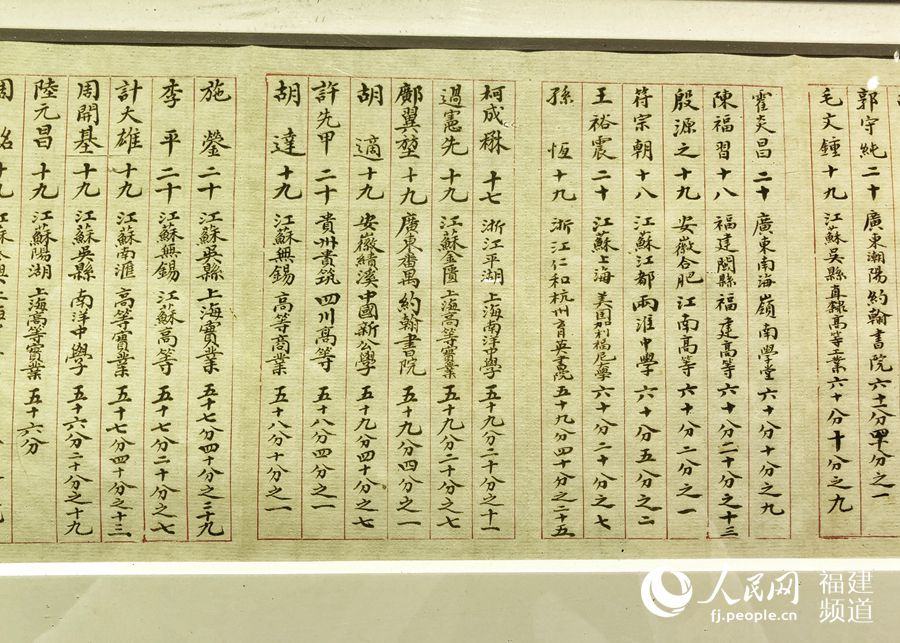 郭守純 二十 廣東潮陽 約翰書院 六十一分四十分之一
毛文鍾 十九 江蘇吳縣 直隸高等工業 六十分十分之九
霍炎昌 二十 廣東南海 嶺南學堂 六十分十分之九
陳福習 十八 福建閩縣 福建高等 六十分二十分之十三
殷源之 十九 安徽合肥 江南高等 六十分二分之一
符宗朝 十八 江蘇江都 兩淮中學 六十分五分之二
王裕震 二十 江蘇上海 美國加利福尼大學 六十分二十分之七
孫恆 十九 浙江仁和 杭州育英書院 五十九分四十分之二十五
柯成楙 十七 浙江平湖 上海南洋中學 五十九分二十分之十一
過憲先 十九 江蘇金匱 上海高等實業 五十九分二十分之七
鄺翼堃 十九 廣東番禺 約翰書院 五十九分四分之一
胡適 十九 安徽績溪 中國新公學 五十九分四十分之七
許先甲 二十 貴州貴筑 四川高等 五十八分四分之一
胡達 十九 江蘇無錫 高等商業 五十八分十分之一
施鎣 二十 江蘇吳縣 上海實業 五十七分四十分之三十九
李平 二十 江蘇無錫 江蘇高等 五十七分二十分之七
計大雄 十九 江蘇南滙 高等實業 五十七分四十分之十三
周開基 十九 江蘇吳縣 南洋中學 五十六分二十分之十九
陸元昌 十九 江蘇陽湖 上海高等實業 五十六分
周銘 十九 江蘇
人民网 福建频道
fj.people.cn